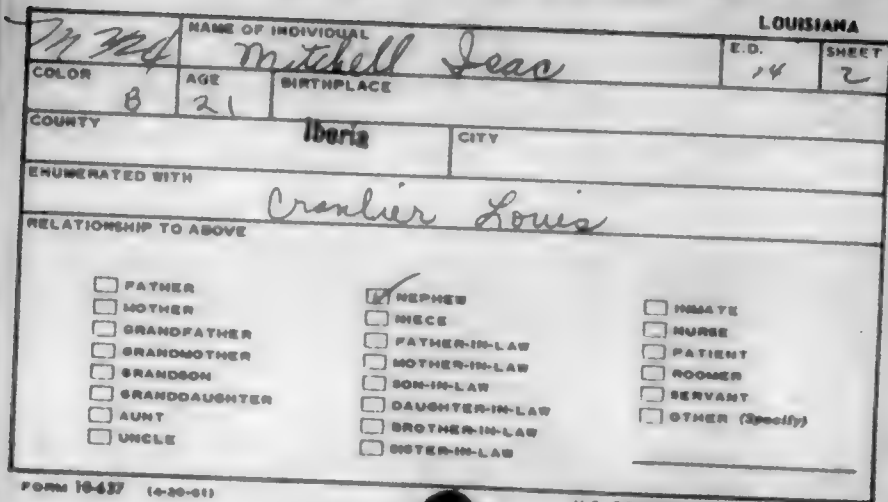 LOUISIANA
NAME OF INDIVIDUAL E.D. SHEET
Mitchell Isac 14 2
COLOR AGE BIRTHPLACE
B 21
COUNTY Iberia CITY
ENUMERATED WITH
Cranlier Louis
RELATIONSHIP TO ABOVE
FATHER
MOTHER
GRANDFATHER
GRANDMOTHER
GRANDSON
GRANDDAUGHTER
AUNT
UNCLE
NEPHEW
NIECE
FATHER-IN-LAW
MOTHER-IN-LAW
SON-IN-LAW
DAUGHTER-IN-LAW
BROTHER-IN-LAW
SISTER-IN-LAW
INMATE
NURSE
PATIENT
ROOMER
SERVANT
OTHER (Specify)
FORM 10-637 (4-20-61)